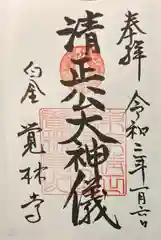 奉拝
令和二年一月六日
清正公大神儀
白金
覚林寺